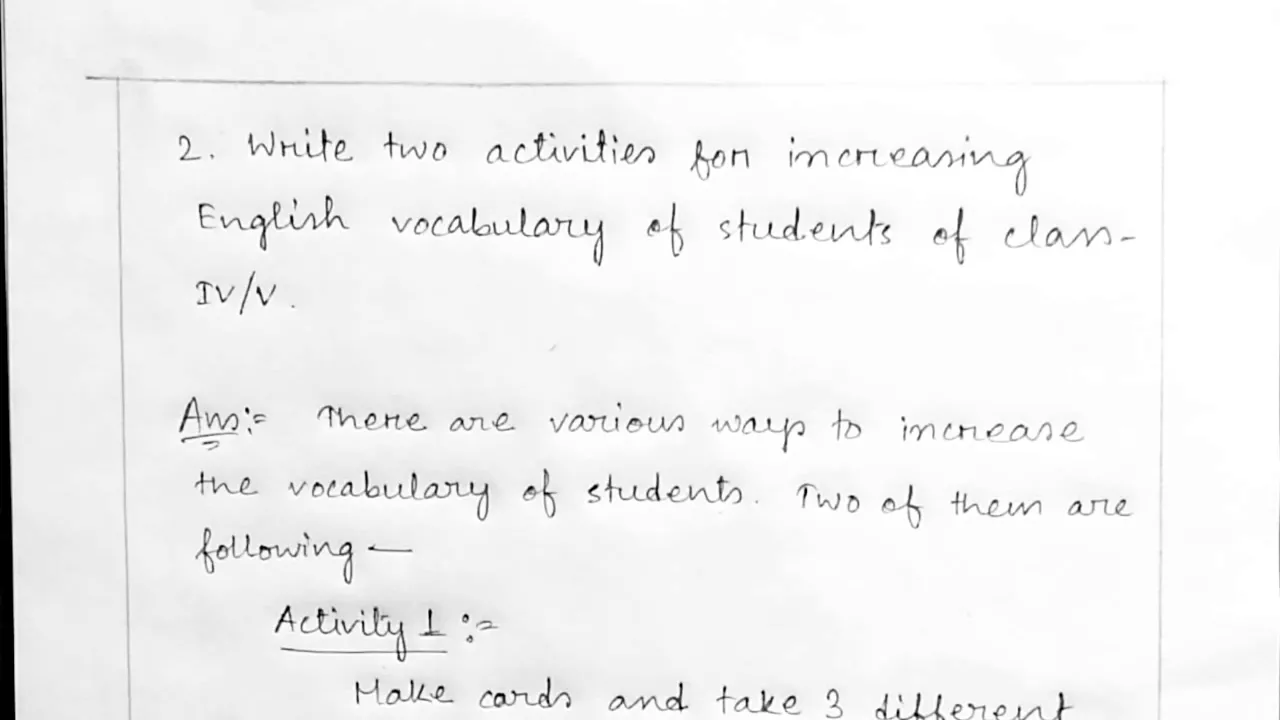 2. Write two activities for increasing
English vocabulary of students of class-
IV/V.
Ans:- There are various ways to increase
the vocabulary of students. Two of them are
following —
Activity 1 :-
Make cards and take 3 different